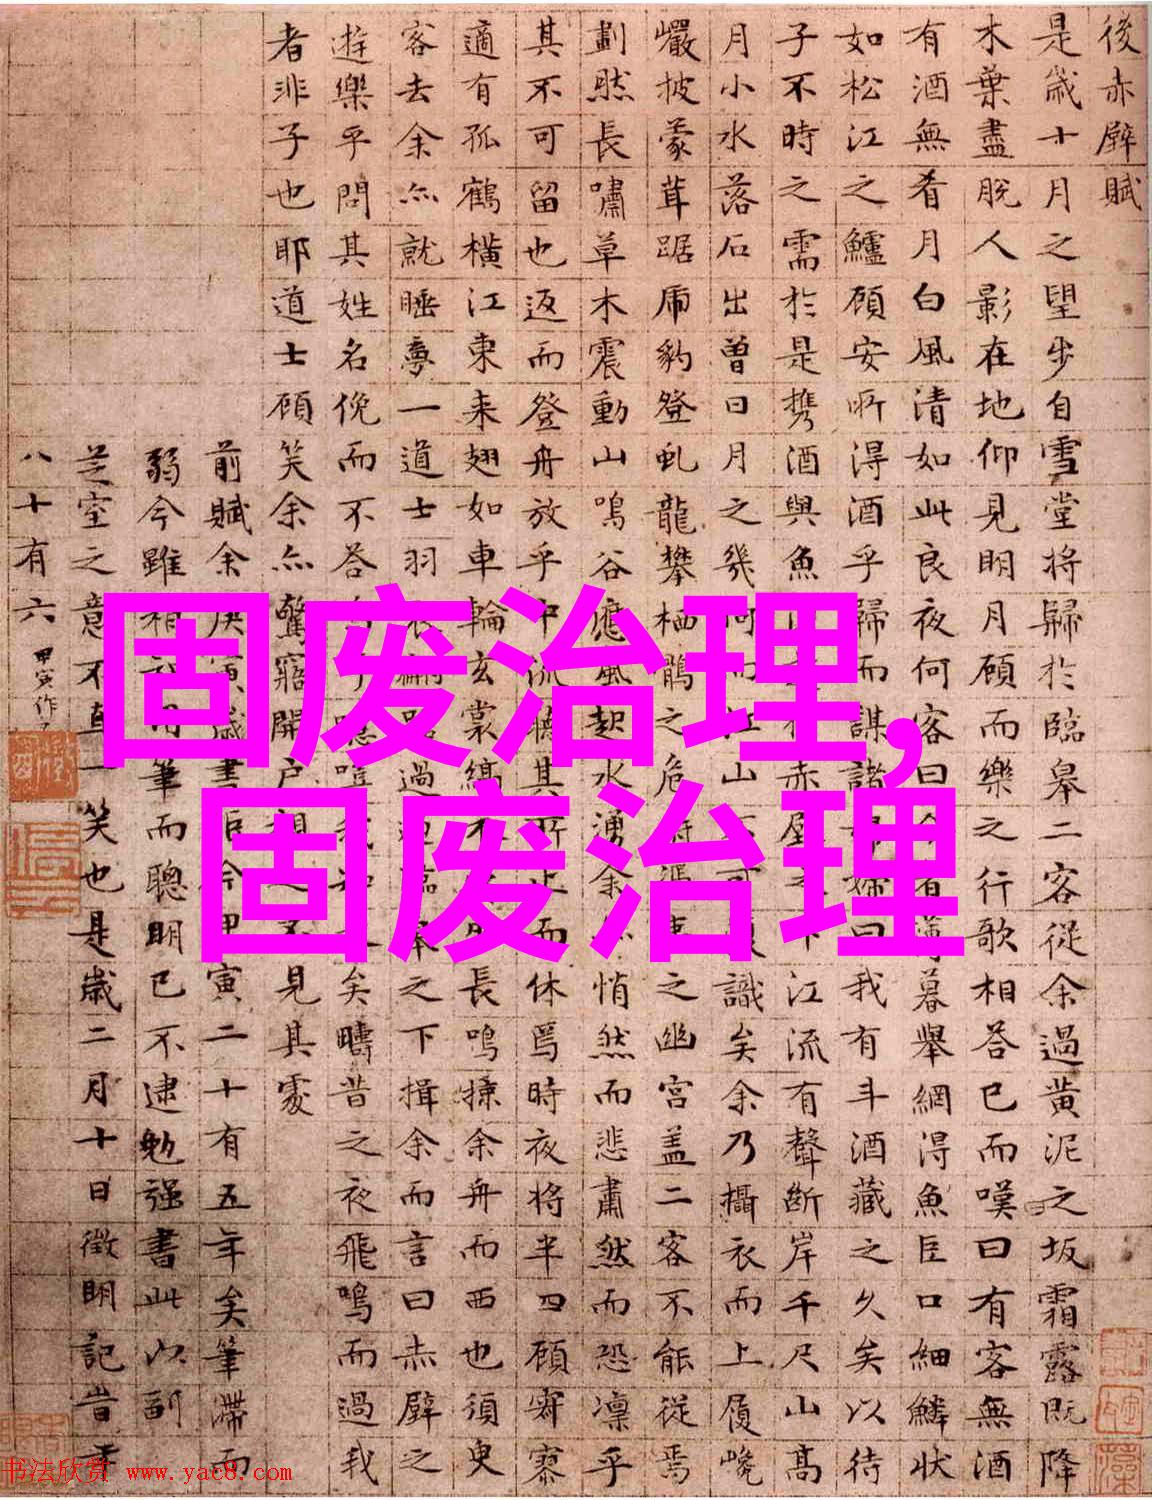 後赤壁賦
是歲十月之望步自雪堂將歸於臨皋二客從余過黃泥之坂霜露既降
木葉盡脫人影在地仰見明月顧而樂之行歌相答已而嘆曰有客無酒
有酒無肴月白風清如此良夜何客曰者薄暮舉網得魚巨口細鱗狀
如松江之鱸顧安所得酒乎歸而謀諸婦曰我有斗酒藏之久矣以待
子不時之需於是携酒與魚赤壁之下江流有聲斷岸千尺山高
月小水落石出曾日月之幾何而江山不可復識矣余乃攝衣而上履巉
巖披蒙茸踞虎豹登虬龍攀栖鶻之危馮夷之幽宮盖二客不能從焉
劃然長嘯草木震動山鳴谷應風起水湧余悄然而悲肅然而恐凜乎
其不可留也返而登舟放乎中流聽其所止而休焉時夜將半四顧寂寥
適有孤鶴橫江東來翅如車輪玄裳縞長鳴掠余舟而西也須臾
客去余亦就睡夢一道士羽過臨皋之下揖余而言曰赤壁之
遊樂乎問其姓名俛而不答噫我知矣疇昔之夜飛鳴而過我
者非子也耶道士顧笑余亦驚寤開戶之不見其處
前賦余庚歲書今甲寅二十有五年矣筆滯而
弱今雖稍用筆而聰明已不逮勉强書此以副
芝室之意不直一笑也是歲二月十日徵明記昔年
八十有六
甲寅作
固废治理,
固废治理
书法欣赏 www.yac8.com